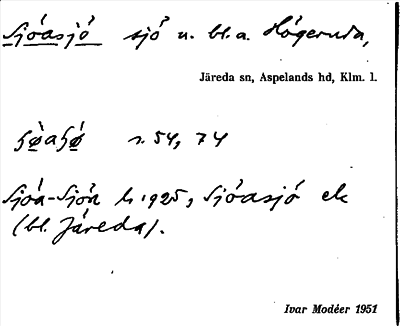 Sjöasjö sjö n. bl.a. Högeruda,
Järeda sn, Aspelands hd, Klm. l.
s. 54, 74
Sjöa-Sjön k 1925, Sjöasjö ek
(bl. Järeda).
Ivar Modéer 1951